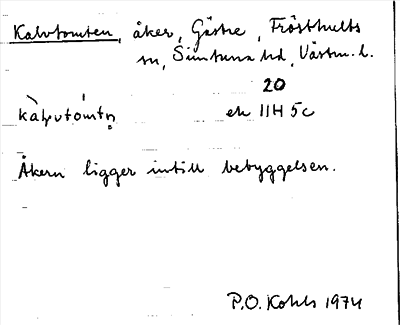 Kalvtomten, åker, Gästre, Frösthults
sn, Simtuna hd, Västm. l.
20
kàḷvtómtn̥ ek 11H 5c
Åkern ligger intill bebyggelsen.
P.O. Kohls 1974